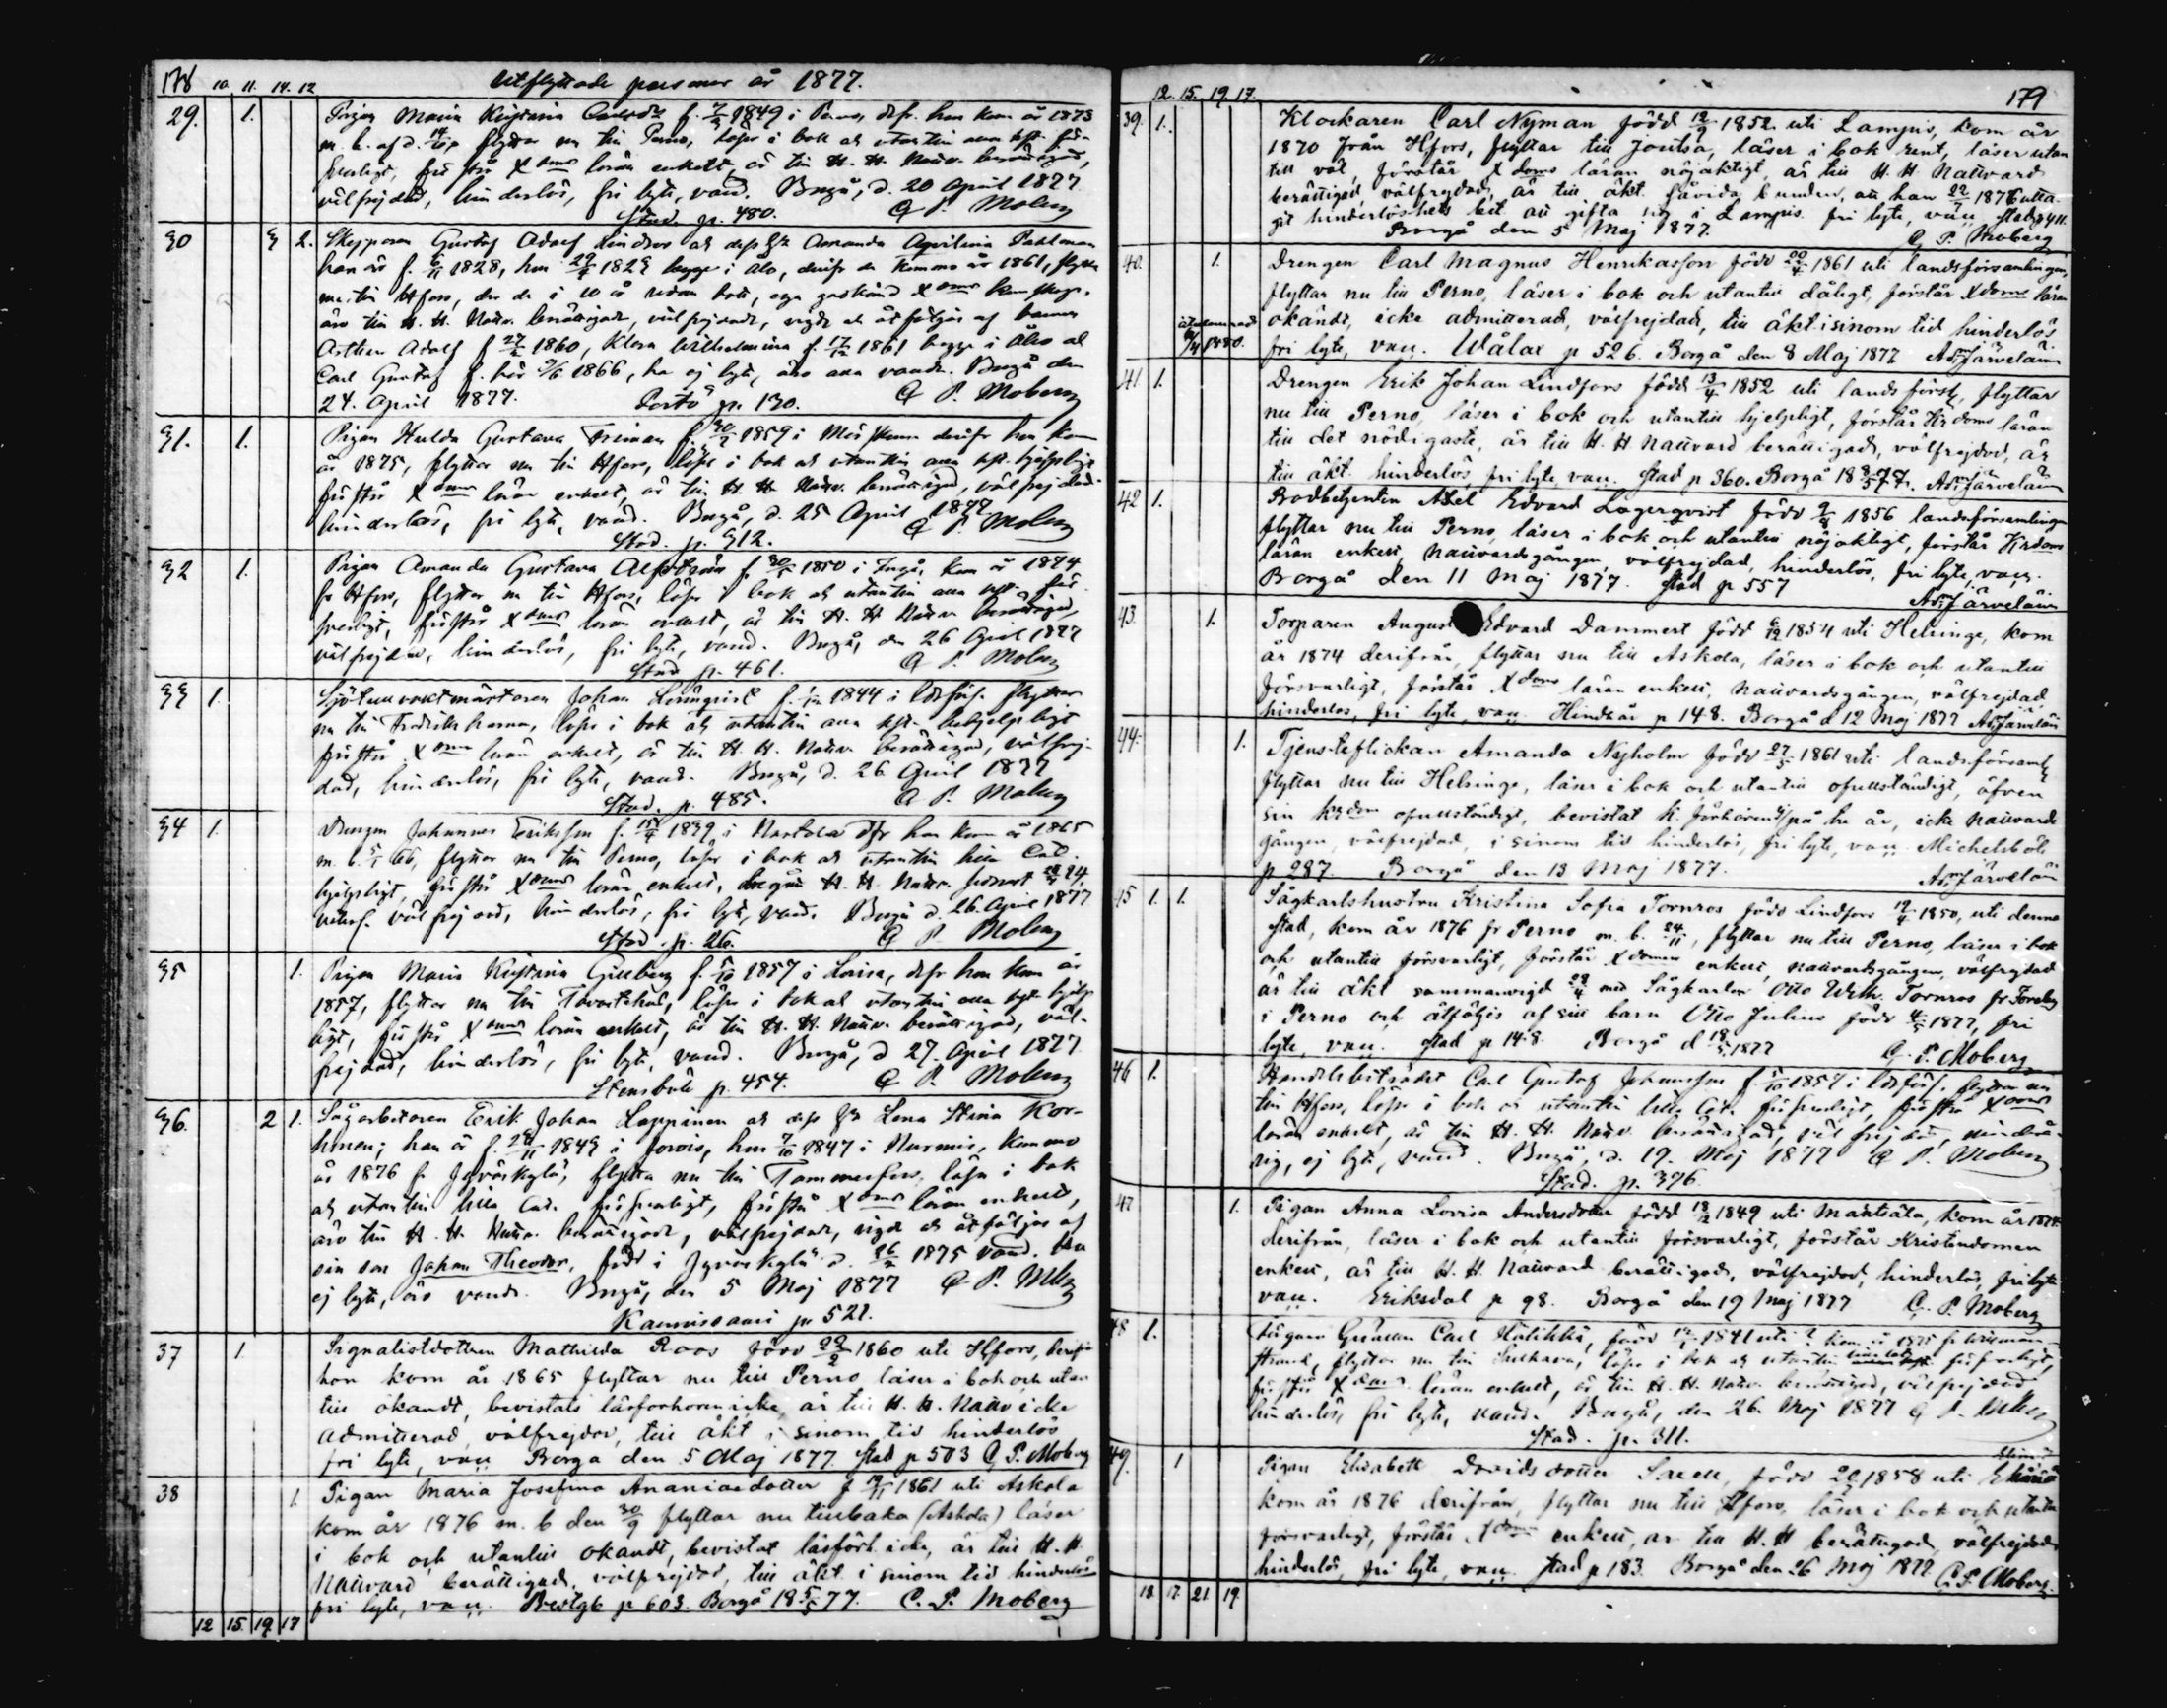 178 10. 11. 14. 12 Utflyttade personer år 1877.
29. 1. Pigan Maria Kristina f. 1849 i Perno, dfr. hon kom år 1873
m. b. af d. flyttar nu till Perno, läser i bok och utantill
enkelt, är till H. H. Nattv. berättigad,
välfrejdad, hinderlös, fri lyte, vacc. Borgå, d. 20 April 1877.
Stad. p. 480. C P. Moberg
30 3 2. Skepparen Gustaf Adolf Lindroos och dess hu Amanda Aqvilina Pahlman
han är f. 6/11 1828, hon 1829 begge i Åbo, derifr de kommo år 1861, flytta
nu till Hfors, der de i 10 år redan bott, ega godkänd Xdoms kunskap.
äro till H. H. Nattv. berättigade, välfrejdade, vigde och åtföljas af barnen
Arthur Adolf f 1860, Klara Wilhelmina f. 17/12 1861 begge i Åbo och
Carl Gustaf f. här 1866, ha ej lyte, äro alla vacc. Borgå den
24. April 1877. p. 130. C P. Moberg
31. 1. Pigan Hulda Gustava Friman f. 30/ 1859 i derifr hon kom
år 1875, flyttar nu till Hfors, läser i bok och utantill
förstår Xdoms läran enkelt, är till H. H. Nattv. berättigad, välfrejdad
hinderlös, fri lyte, vacc. Borgå, d. 25 April 1877
Stad. p. 312. C P. Moberg
32 1. Pigan Amanda Gustava f. 30/ 1850 i Ingå, kom år 1874
fr Hfors, flyttar nu till Hfors, läser i bok och utantill
förstår Xdoms läran enkelt, är till H. H. Nattv. berättigad,
välfrejdad, hinderlös, fri lyte, vacc. Borgå, den 26 April 1877
Stad p. 461. C P. Moberg
33 1. Johan Lönnqvist f. 1844 i ldsförs. flyttar
nu till Fredrikshamn, läser i bok och utantill hjelpligt
förstår Xdoms läran enkelt, är till H. H. Nattv. berättigad, välfrej-
dad, hinderlös, fri lyte, vacc. Borgå, d. 26 April 1877
Stad. p. 485. C P. Moberg
34 1. Drengen Johannes Eriksson f. 15/4 1839 i Nastola dfr han kom år 1865
m. b. 66, flyttar nu till Perno, läser i bok och utantill hela Cat.
hjelpligt, förstår Xdoms läran enkelt, begått H. H. Nattv.
välfrejdad, hinderlös, fri lyte, vacc. Borgå d. 26. April 1877
Stad. p. 26. C P. Moberg
35 1. Pigan Maria Kristina Gillberg f. 5/10 1857 i Lovisa, dfr hon kom år
1857, flyttar nu till Tavastehus, läser i bok och utantill
ligt, förstår Xdoms läran enkelt, är till H. H. Nattv. berättigad, väl-
frejdad, hinderlös, fri lyte, vacc. Borgå, d 27. April 1877
Stensböle p. 454. C P. Moberg
36. 2 1. Sågarbetaren Erik Johan Lappinen och dess hu Lena Stina Kor-
honen; han är f. 1849 i Jorois, hon 1847 i Nurmis, kommo
år 1876 fr Jyväskylä, flytta nu till Tammerfors, läsa i bok
och utantill hela Cat. försvarligt, förstå Xdoms läran enkelt,
äro till H. H. Nattv. berättigade, välfrejdade, vigde och åtföljas af
sin son Johan Theodor, född i Jyväskylä d. 26/2 1875 vacc. ha
ej lyte, äro vacc. Borgå, den 5 Maj 1877 C P. Mbrg
p. 521.
37 1. Signalistdottren Mathilda Roos född 22/2 1860 uti Hfors, derifr
hon kom år 1865 flyttar nu till Perno läser i bok och utan
till okändt, bevistat läsförhören icke, är till H. H. Nattv icke
admitterad, välfrejdad, till äkt i sinom tid hinderlös
fri lyte, vacc Borgå den 5 Maj 1877 Stad p 503 C P. Moberg
38 1. Pigan Maria Josefina Ananiasdotter f 19/11 1861 uti Askola
kom år 1876 m. b den 30/9 flyttar nu tillbaka (Askola) läser
i bok och utantill okändt, bevistat läsförh. icke, är till H. H.
Nattvard berättigad, välfrejdad, till äkt i sinom tid hinderlös
fri lyte, vacc. Prestgb p 603. Borgå 18 5/5 77. C. P. Moberg
12 15 19 17
12. 15. 19. 17. 179
39. 1. Klockaren Carl Nyman född 12/9 1852 uti Lampis, kom år
1870 från Hfors, flyttar till Joutsa, läser i bok rent, läser utan
till väl, förstår Xdoms läran nöjaktigt, är till H. H. Nattvard
berättigad, välfrejdad, är till äkt. såvida bunden, att han 22/7 1876 utta-
git hinderlöshets bet. att gifta sig i Lampis. fri lyte, vacc, stad p 411.
Borgå den 5 Maj 1877. C P. Moberg
40. 1. Drengen Carl Magnus Henriksson född 20/4 1861 uti landsförsamlingen,
flyttar nu till Perno, läser i bok och utantill dåligt, förstår Xdoms läran
okändt, icke admitterad, välfrejdad, till äkt. i sinom tid hinderlös
fri lyte, vacc. Wålax p 526. Borgå den 8 Maj 1877 Adj Järveläin
41. 1. Drengen Erik Johan Lindfors född 13/4 1852 uti landsförs, flyttar
nu till Perno, läser i bok och utantill hjelpligt, förstår Krdoms läran
till det nödigaste, är till H. H nattvard berättigad, välfrejdad, är
till äkt. hinderlös, fri lyte, vacc. stad p 360. Borgå 18 8/5 77. Adj Järveläin
42 1. Axel Edvard Lagerqvist född 1856 landsförsamlingen
flyttar nu till Perno, läser i bok och utantill nöjaktigt, förstår Krdoms
läran enkelt, nattvardsgången, välfrejdad, hinderlös, fri lyte, vacc.
Borgå den 11 Maj 1877. Stad p 557
Adj Järveläin
43. 1. Torparen August Edvard Dammert född 6/12 1854 uti Helsinge, kom
år 1874 derifrån, flyttar nu till Askola, läser i bok och utantill
försvarligt, förstår Xdoms läran enkelt, nattvardsgången, välfrejdad
hinderlös, fri lyte, vacc. Hindhår p 148. Borgå d 12 Maj 1877 Adj Järveläin
44. 1. Tjensteflickan Amanda Nyholm född 27/ 1861 uti landsförsaml
flyttar nu till Helsinge, läser i bok och utantill ofullständigt, äfven
sin krdom ofullständigt, bevistat k. förhören på år, icke nattvards
gången, välfrejdad, i sinom tid hinderlös, fri lyte, vacc. Michelsböle
p 287. Borgå den 13 Maj 1877. Adj Järveläin
45 1. 1. Sågkarlshustru Kristina Sofia Tornroos född Lindfors 12/4 1850, uti denna
stad, kom år 1876 fr Perno m. b. 24/11, flyttar nu till Perno, läser i bok
och utantill försvarligt, förstår Xdomen enkelt, nattvardsgången, välfrejdad
är till äkt sammanvigd med Sågkarlen Otto Wilh. Tornroos fr Forsby
i Perno och åtföljes af sitt barn Otto Julius född 4/5 1877, fri
lyte, vacc. Stad p 148. Borgå d 18/5 1877 C. P. Moberg
46 1. Handelsbiträdet Carl Gustaf Johansson f. 1857 i ldsförs. flyttar nu
till Hfors, läser i bok och utantill hela Cat. försvarligt, förstår Xdoms
läran enkelt, är till H. H. Nattv. berättigad, välfrejdad, minderå-
rig, ej lyte, vacc. Borgå, d. 19. Maj 1877 C P. Moberg
Stad. p. 396.
47 1. Pigan Anna Lovisa Andersdotter född 18/12 1849 uti Mäntsälä, kom år 1874
derifrån, läser i bok och utantill försvarligt, förstår Kristendomen
enkelt, är till H. H. nattvard berättigad, välfrejdad, hinderlös, fri lyte
vacc. Eriksdal p 98. Borgå den 19 Maj 1877 C. P. Moberg
48 1. Carl född 1841 uti ? kom år 1875 fr Willman-
strand, flyttar nu till Sulkava, läser i bok och utantill försvarligt,
förstår Xdoms läran enkelt, är till H. H. Nattv. berättigad, välfrejdad
hinderlös, fri lyte, vacc. Borgå, den 26. Maj 1877 C P. Mbrg
Stad. p. 311.
49. 1 Pigan Elisabeth Davidsdotter född 1858 uti
kom år 1876 derifrån, flyttar nu till Hfors, läser i bok och utantill
försvarligt, förstår Xdomen enkelt, är till H. H berättigad, välfrejdad
hinderlös, fri lyte, vacc. Stad p 183. Borgå den 26 Maj 1877 C. P. Moberg.
18. 17. 21. 19.